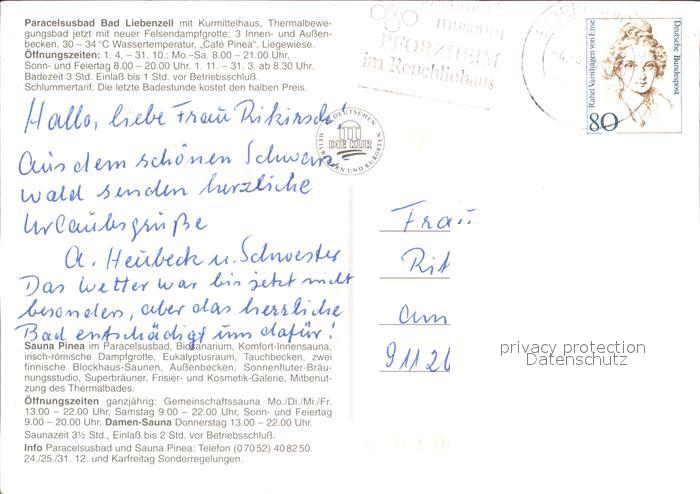 Paracelsusbad Bad Liebenzell mit Kurmittelhaus, Thermalbewe-
gungsbad jetzt mit neuer Felsendampfgrotte: 3 Innen- und Außen-
becken, 30 – 34 °C Wassertemperatur, „Café Pinea“, Liegewiese.
Öffnungszeiten: 1. 4. – 31. 10.: Mo.–Sa. 8.00 – 21.00 Uhr,
Sonn- und Feiertag 8.00 – 20.00 Uhr. 1. 11. – 31. 3. ab 8.30 Uhr.
Badezeit 3 Std. Einlaß bis 1 Std. vor Betriebsschluß.
Schlummertarif: Die letzte Badestunde kostet den halben Preis.
Hallo, liebe Frau
Aus dem schönen Schwarz-
wald senden herzliche
Urlaubsgrüße
A. Heubeck u. Schwester
Das Wetter war bis jetzt nicht
besonders, aber das herrliche
Bad entschädigt uns dafür!
Sauna Pinea im Paracelsusbad, Biosanarium, Komfort-Innensauna,
irisch-römische Dampfgrotte, Eukalyptusraum, Tauchbecken, zwei
finnische Blockhaus-Saunen, Außenbecken, Sonnenfluter-Bräu-
nungsstudio, Superbräuner, Frisier- und Kosmetik-Galerie, Mitbenut-
zung des Thermalbades.
Öffnungszeiten ganzjährig: Gemeinschaftssauna Mo./Di./Mi./Fr.
13.00 – 22.00 Uhr, Samstag 9.00 – 22.00 Uhr, Sonn- und Feiertag
9.00 – 20.00 Uhr, Damen-Sauna Donnerstag 13.00 – 22.00 Uhr.
Saunazeit 3½ Std., Einlaß bis 2 Std. vor Betriebsschluß.
Info Paracelsusbad und Sauna Pinea: Telefon (0 70 52) 40 82 50.
24./25./31. 12. und Karfreitag Sonderregelungen.
DIE KUR
museum
PFORZHEIM
im Reuchlinhaus
Rahel Varnhagen von Ense
Deutsche Bundespost
80
Frau
Rit
am
9112
privacy protection
Datenschutz